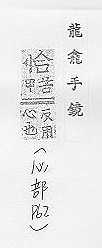 龍龕手鏡
恰
苦洽反用心也
(心部P62)